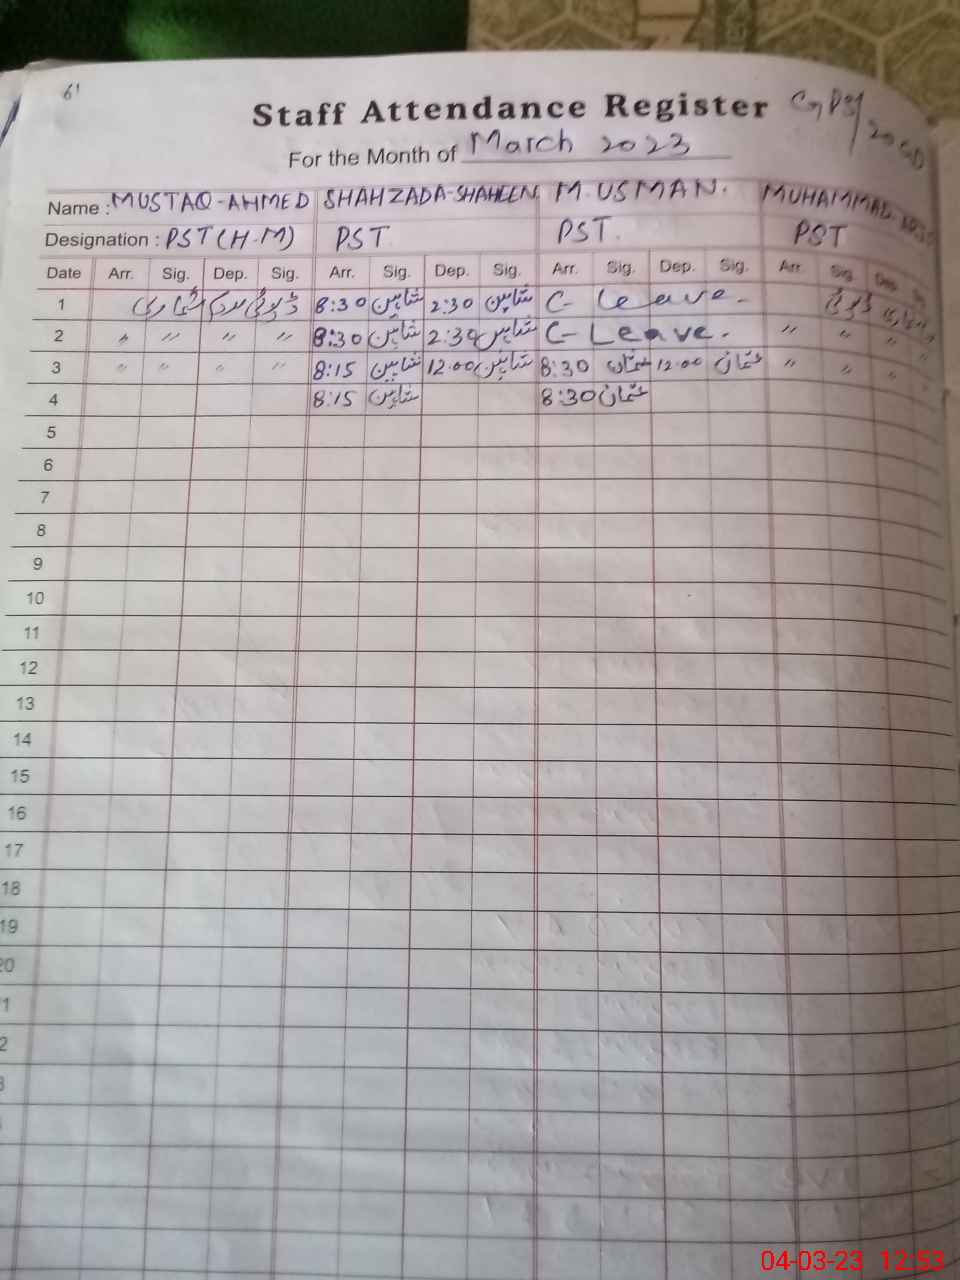 61
Staff Attendance Register
For the Month of March 2023
Name : MUSTAQ-AHMED SHAHZADA-SHAHEEN. M. USMAN. MUHAMMAD
Designation : PST (H.M) PST. PST. PST
Date Arr. Sig. Dep. Sig. Arr. Sig. Dep. Sig. Arr. Sig. Dep. Sig. Arr. Sig. Dep.
1 ڈیوٹی مردم شماری 8:30 شاہین 2:30 شاہین C- Leave. ڈیوٹی
2 " " " " 8:30 شاہین 2:30 شاہین C- Leave. " " " "
3 " " " " 8:15 شاہین 12.00 شاہین 8:30 عثمان 12.00 عثمان " " " "
4 8:15 شاہین 8:30 عثمان
5
6
7
8
9
10
11
12
13
14
15
16
17
18
19
20
04-03-23 12:53